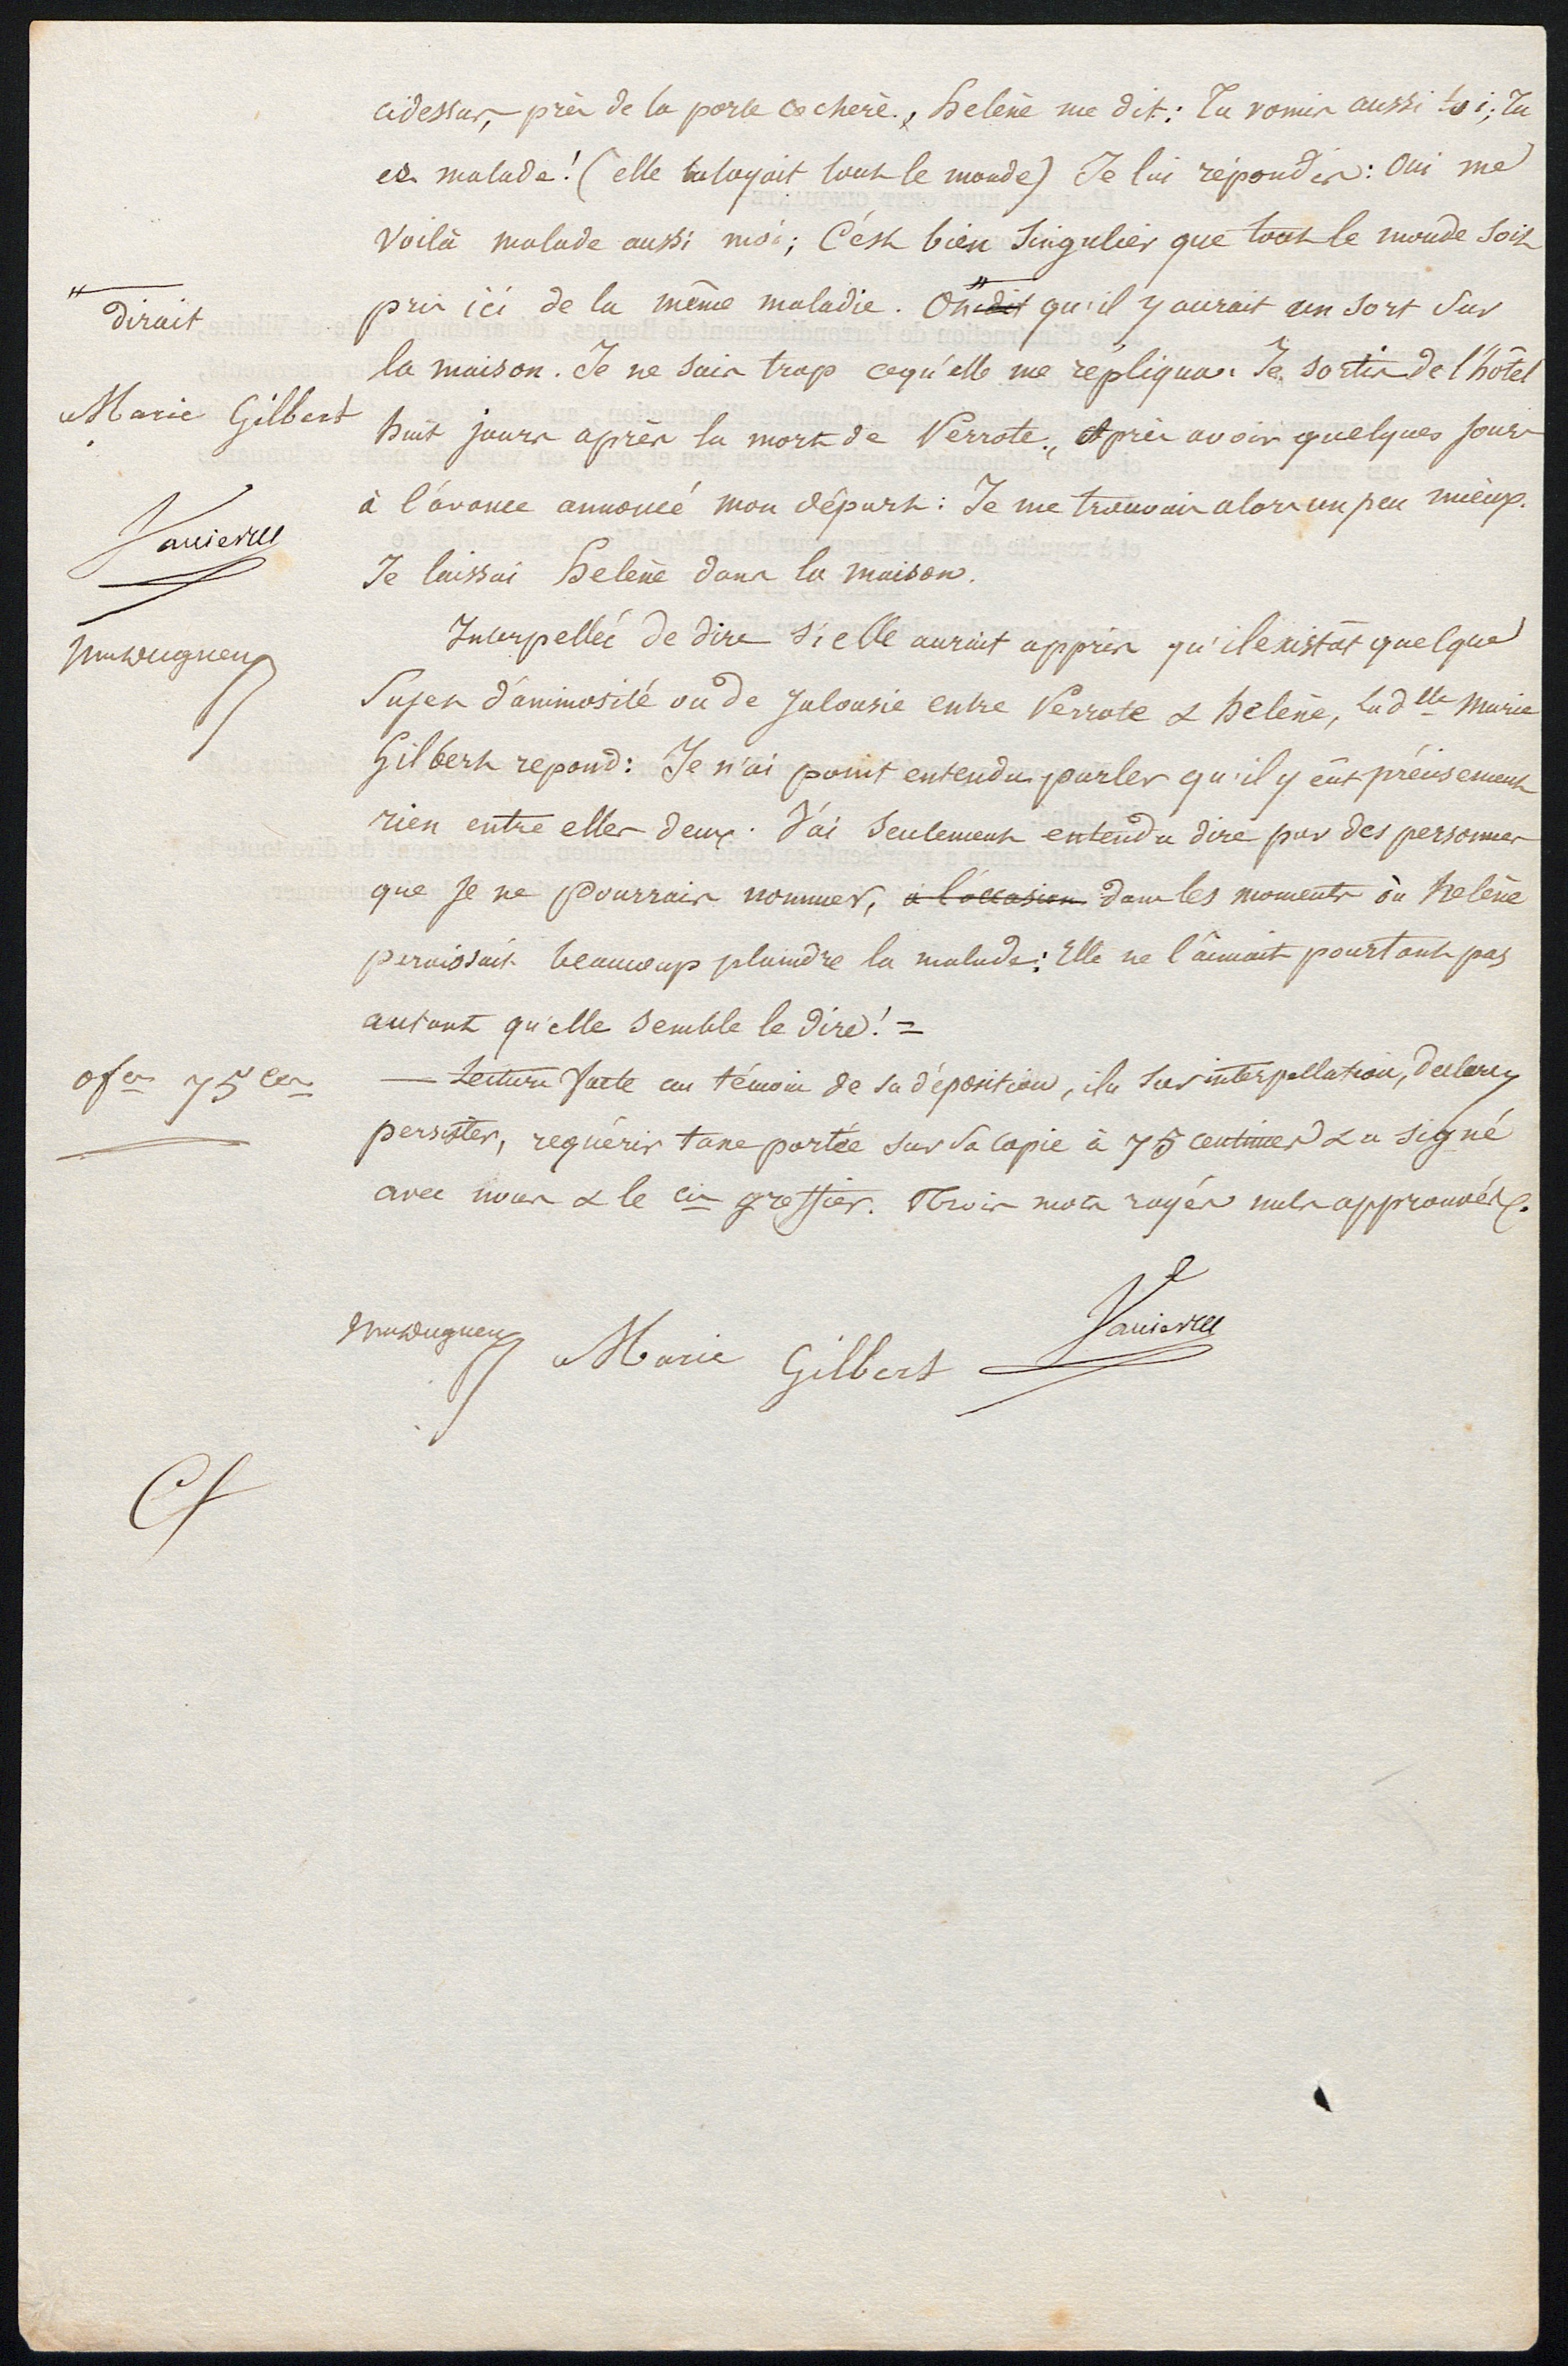 cidessus, près de la porte cochère, helène me dit: Tu vomis aussi toi; Tu
es malade! (elle tutoyait tout le monde) Je lui répondis: Oui me
voilà malade aussi moi; C'est bien singulier que tout le monde soit
pris ici de la même maladie. On dit qu'il y aurait un sort sur
"
dirait
la maison. Je ne sais trop cequ'elle me répliqua. Je sortis de l'hôtel
Marie Gilbert
huit jours après la mort de Perrote, après avoir quelques jours
à l'avance annoncé mon départ: Je me trouvais alors un peu mieux.
Je laissai helène dans la maison.
Interpellée de dire si elle aurait appris qu'il existât quelque
sujet d'animosité ou de jalousie entre Perrote & helène, lad lle Marie
Gilbert repond: Je n'ai point entendu parler qu'il y eût précisement
rien entre elles deux. J'ai seulement entendu dire par des personnes
que je ne pourrais nommer, à l'occasion dans les moments où helène
paraissait beaucoup plaindre la malade: Elle ne l'aimait pourtant pas
autant qu'elle semble le dire! =
0 fcs 75 ces
— Lecture faite au témoin de sa déposition, il a sur interpellation, declaré y
persister, requérir taxe portée sur sa copie à 75 centimes & a signé
avec nous & le cis greffier. Trois mots rayés nuls approuvés.
Marie Gilbert